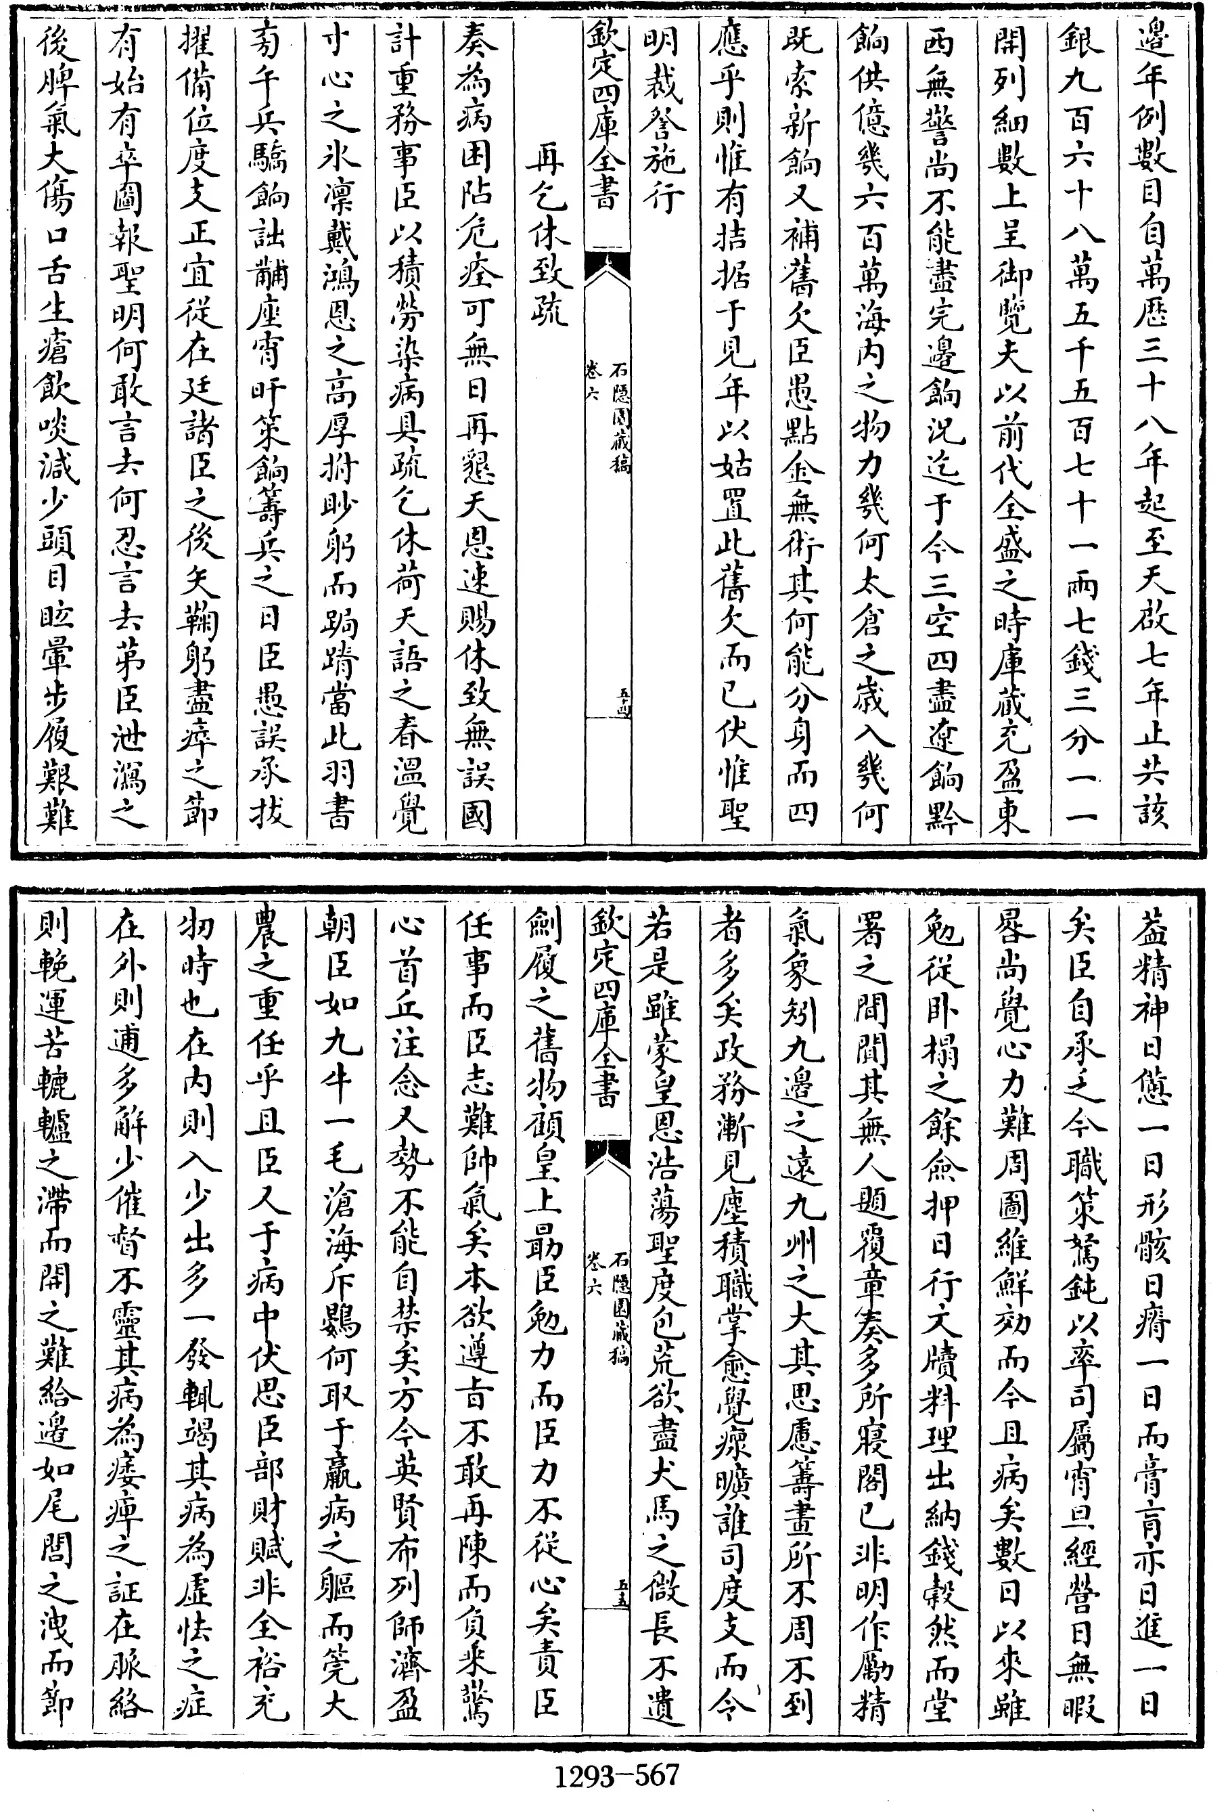 邊年例數目自萬歷三十八年起至天啟七年止共該
銀九百六十八萬五千五百七十一兩七錢三分一一
開列細數上呈御覽夫以前代全盛之時庫藏充盈東
西無警尚不能盡完邊餉況迄于今三空四盡遼餉黔
餉供億幾六百萬海内之物力幾何太倉之歲入幾何
既索新餉又補舊欠臣愚點金無術其何能分身而四
應乎則惟有拮据于見年以姑置此舊欠而已伏惟聖
明裁詧施行
欽定四庫全書
石隱園藏稿
卷六
五十四
再乞休致疏
奏為病困阽危痊可無日再懇天恩速賜休致無誤國
計重務事臣以積勞染病具疏乞休荷天語之春溫覺
寸心之氷凜戴鴻恩之高厚拊眇躬而跼蹐當此羽書
旁午兵驕餉詘黼座宵旰策餉籌兵之日臣愚誤承拔
擢備位度支正宜從在廷諸臣之後矢鞠躬盡瘁之節
有始有卒圖報聖明何敢言去何忍言去第臣泄瀉之
後脾氣大傷口舌生瘡飲啖減少頭目眩暈步履艱難
葢精神日憊一日形骸日瘠一日而膏肓亦日進一日
矣臣自承乏今職策駑鈍以率司屬宵旦經營日無暇
晷尚覺心力難周圖維鮮効而今且病矣數日以來雖
勉從卧榻之餘僉押日行文牘料理出納錢穀然而堂
署之間閴其無人題覆章奏多所寢閣已非明作勵精
氣象矧九邊之遠九州之大其思慮籌畫所不周不到
者多矣政務漸見塵積職掌愈覺瘝曠誰司度支而令
若是雖蒙皇恩浩蕩聖度包荒欲盡犬馬之微長不遺
欽定四庫全書
石隱園藏稿
卷六
五十五
劍履之舊物顧皇上勗臣勉力而臣力不從心矣責臣
任事而臣志難帥氣矣本欲遵旨不敢再陳而負乘驚
心首丘注念又勢不能自禁矣方今英賢布列師濟盈
朝臣如九牛一毛滄海斥鷃何取于羸病之軀而筦大
農之重任乎且臣又于病中伏思臣部財賦非全裕充
牣時也在内則入少出多一發輒竭其病為虛怯之症
在外則逋多解少催督不靈其病為痿痺之証在脈絡
則輓運苦轆轤之滯而開之難給邊如尾閭之洩而節
1293-567